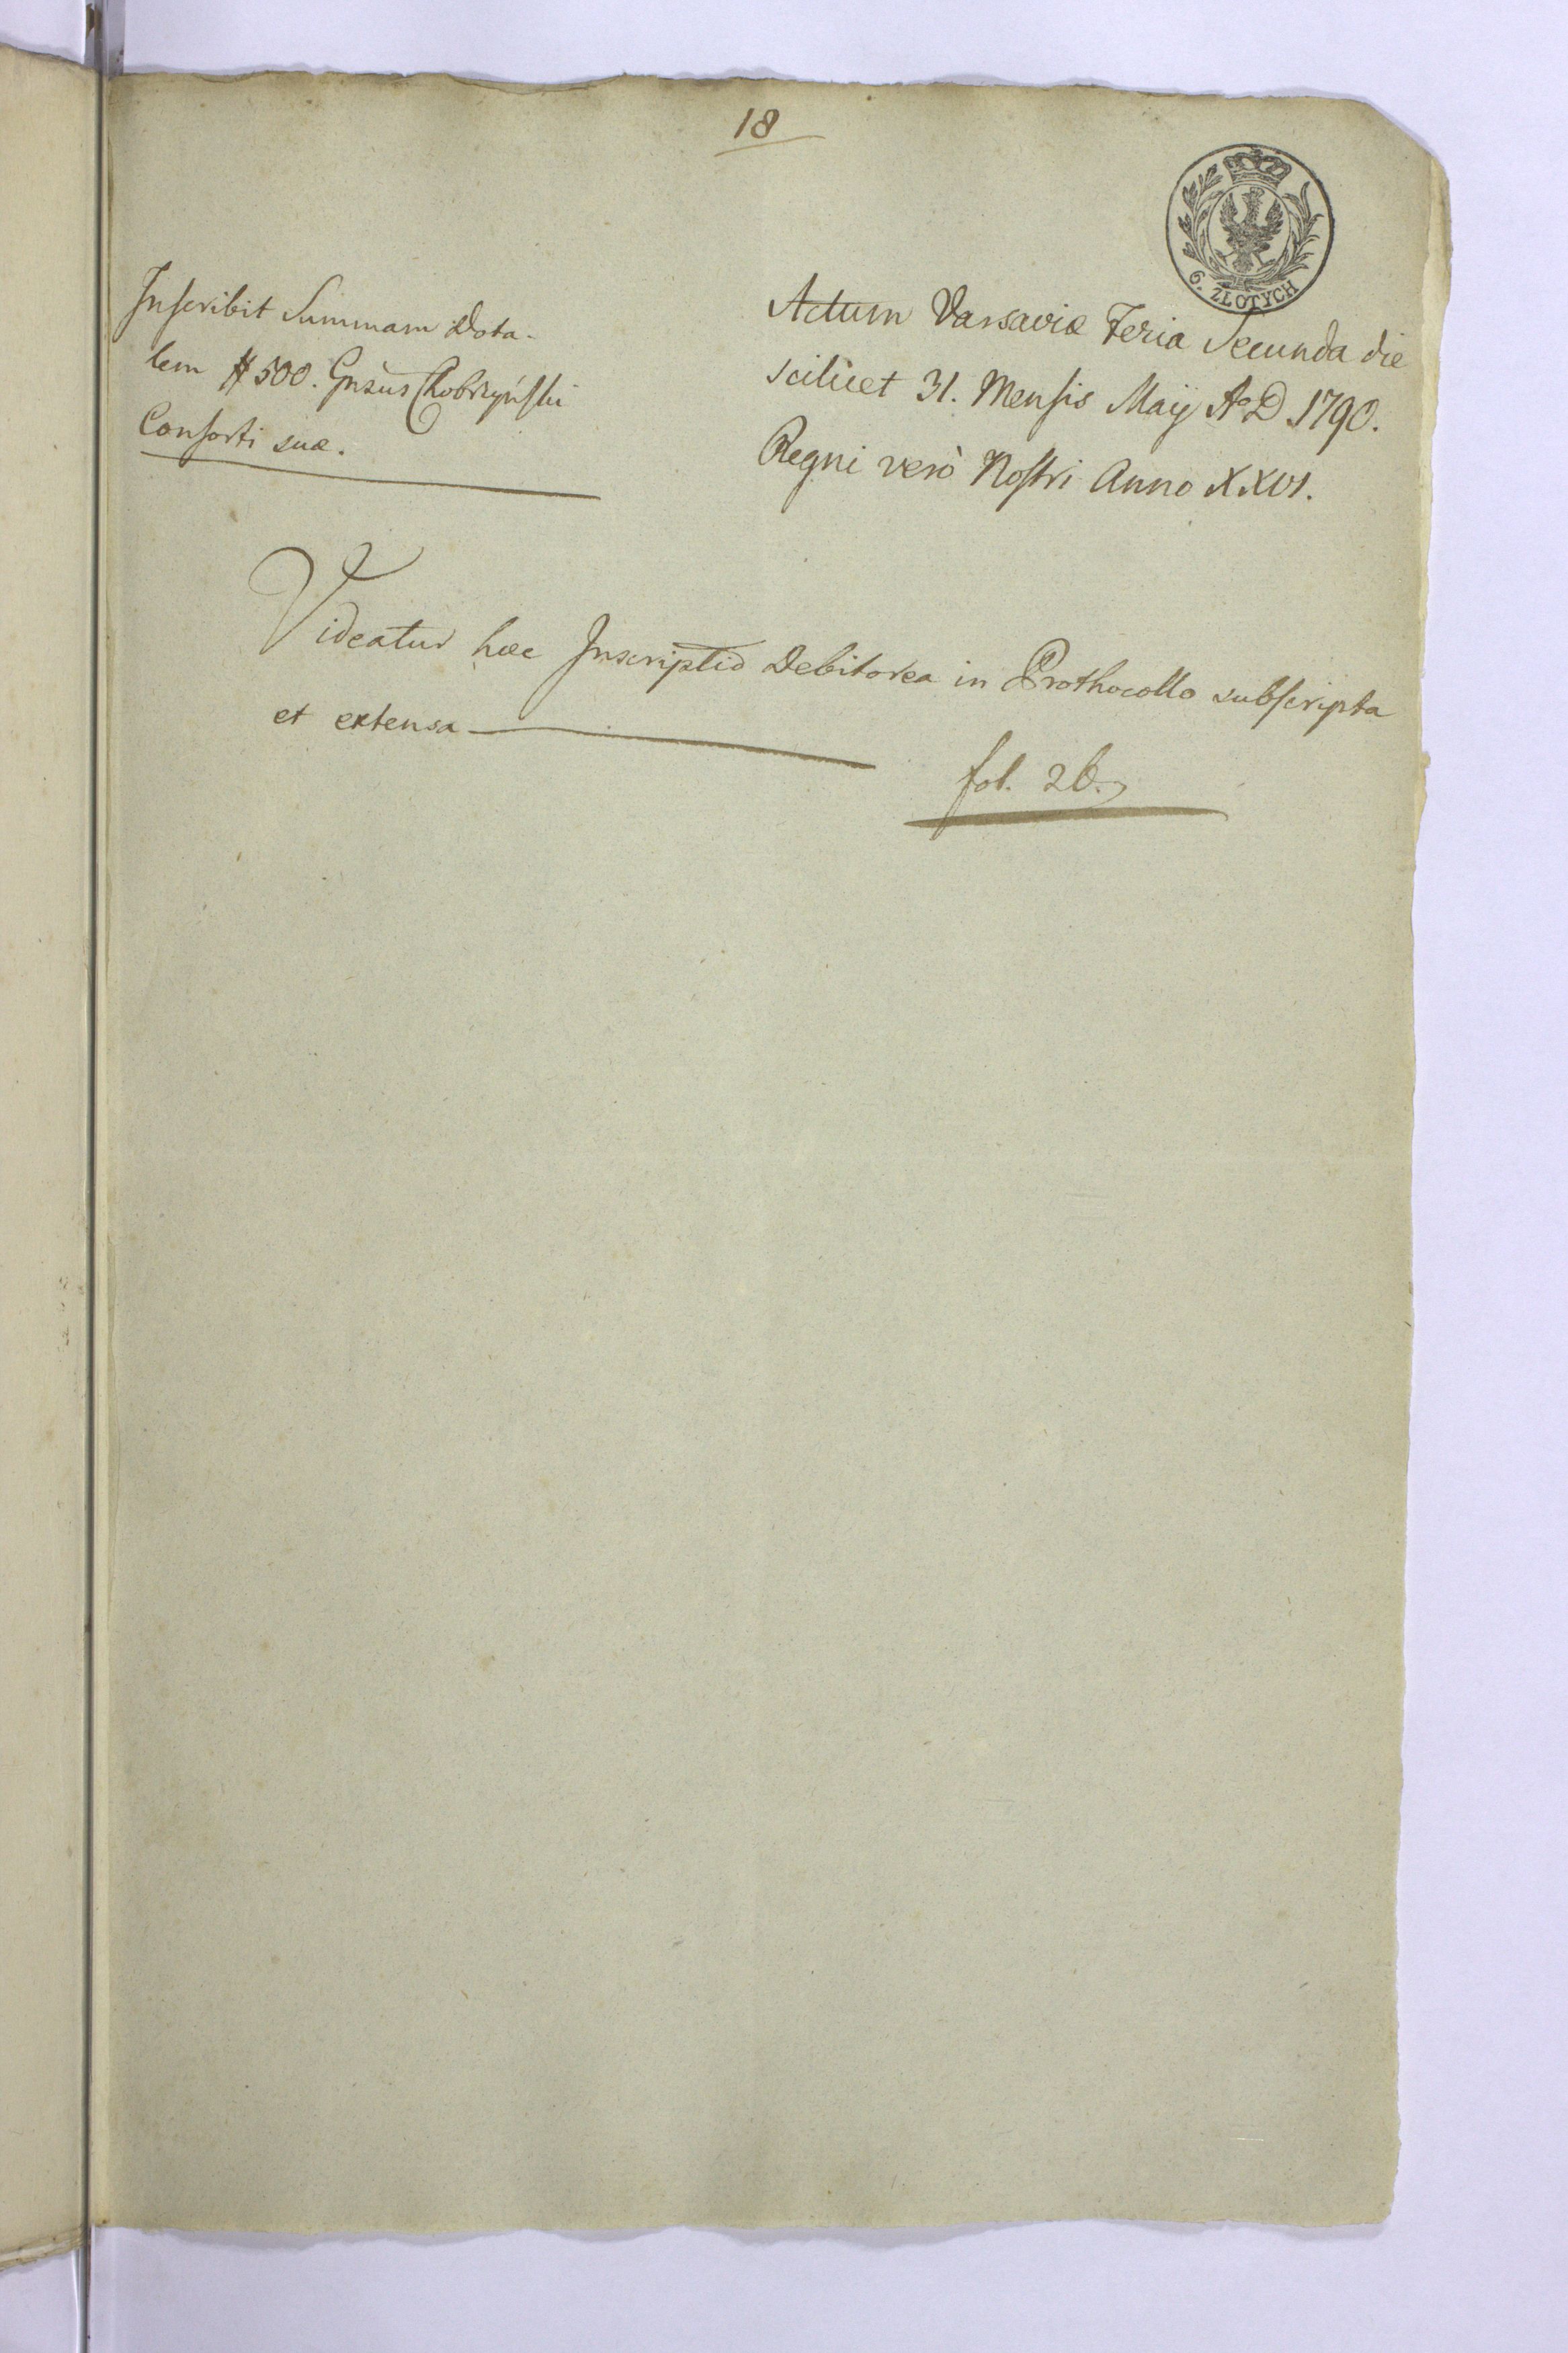 18
6. ZŁOTYCH
Inscribit Summam Dota-
lem # 500. Gnsus Chobrzyński
Consorti suæ.
Actum Varsaviæ Feria Secunda die
scilicet 31. Mensis Maij Aº D 1790.
Regni verò Nostri Anno XXVI.
Videatur hæc Inscriptio Debitorea in Prothocollo subscripta
et extensa
fol. 26.